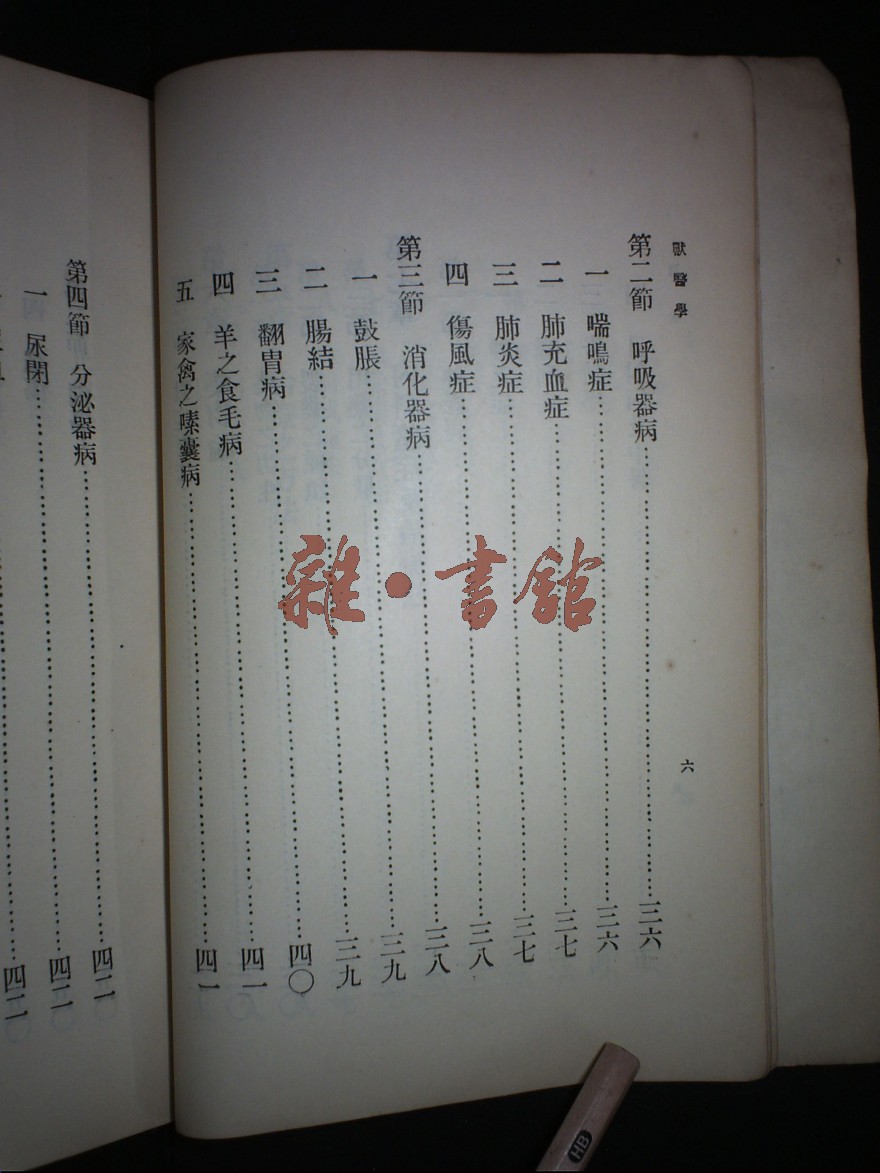 獸醫學
六
第二節 呼吸器病……三六
一 喘鳴症……三六
二 肺充血症……三七
三 肺炎症……三七
四 傷風症……三八
第三節 消化器病……三八
一 鼓脹……三九
二 腸結……三九
三 翻胃病……四〇
四 羊之食毛病……四一
五 家禽之嗉囊病……四一
第四節 分泌器病……四二
一 尿閉……四二
四二
雜·書館
HB